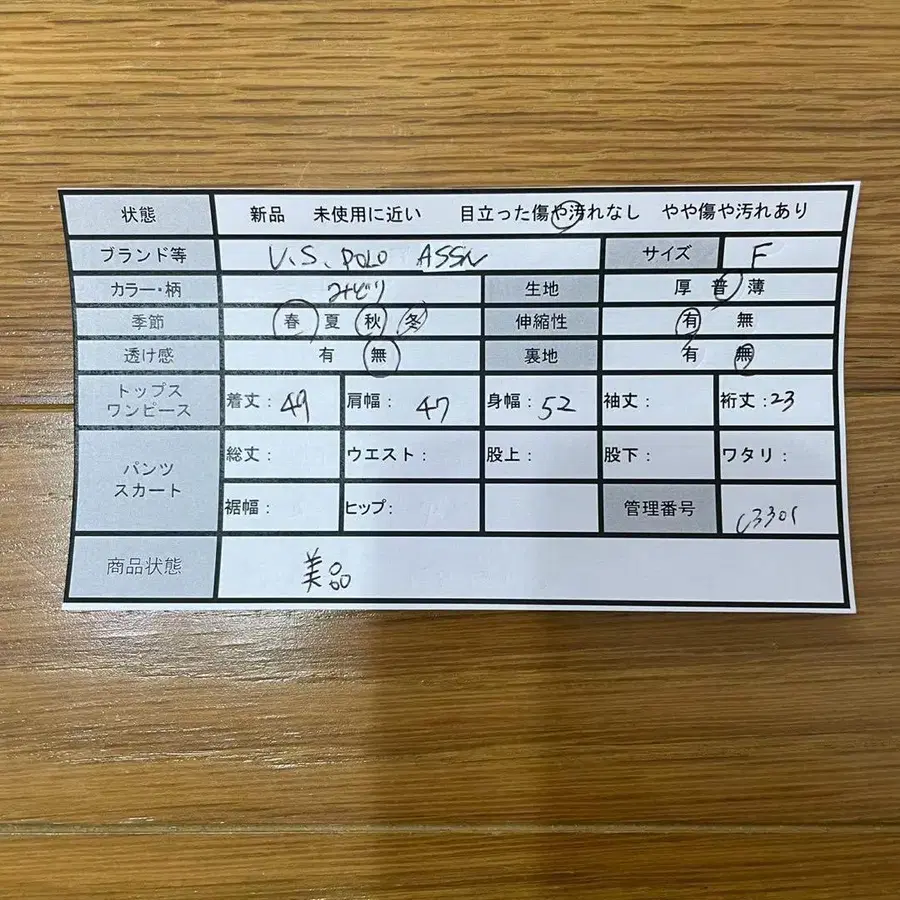 状態 新品 未使用に近い 目立った傷や汚れなし やや傷や汚れあり
ブランド等 U.S. POLO ASSN サイズ F
カラー・柄 みどり 生地 厚 普 薄
季節 春 夏 秋 冬 伸縮性 有 無
透け感 有 無 裏地 有 無
トップス
ワンピース
着丈: 49 肩幅: 47 身幅: 52 袖丈: 裄丈: 23
パンツ
スカート
総丈: ウエスト: 股上: 股下: ワタリ:
裾幅: ヒップ: 管理番号 C3301
商品状態 美品